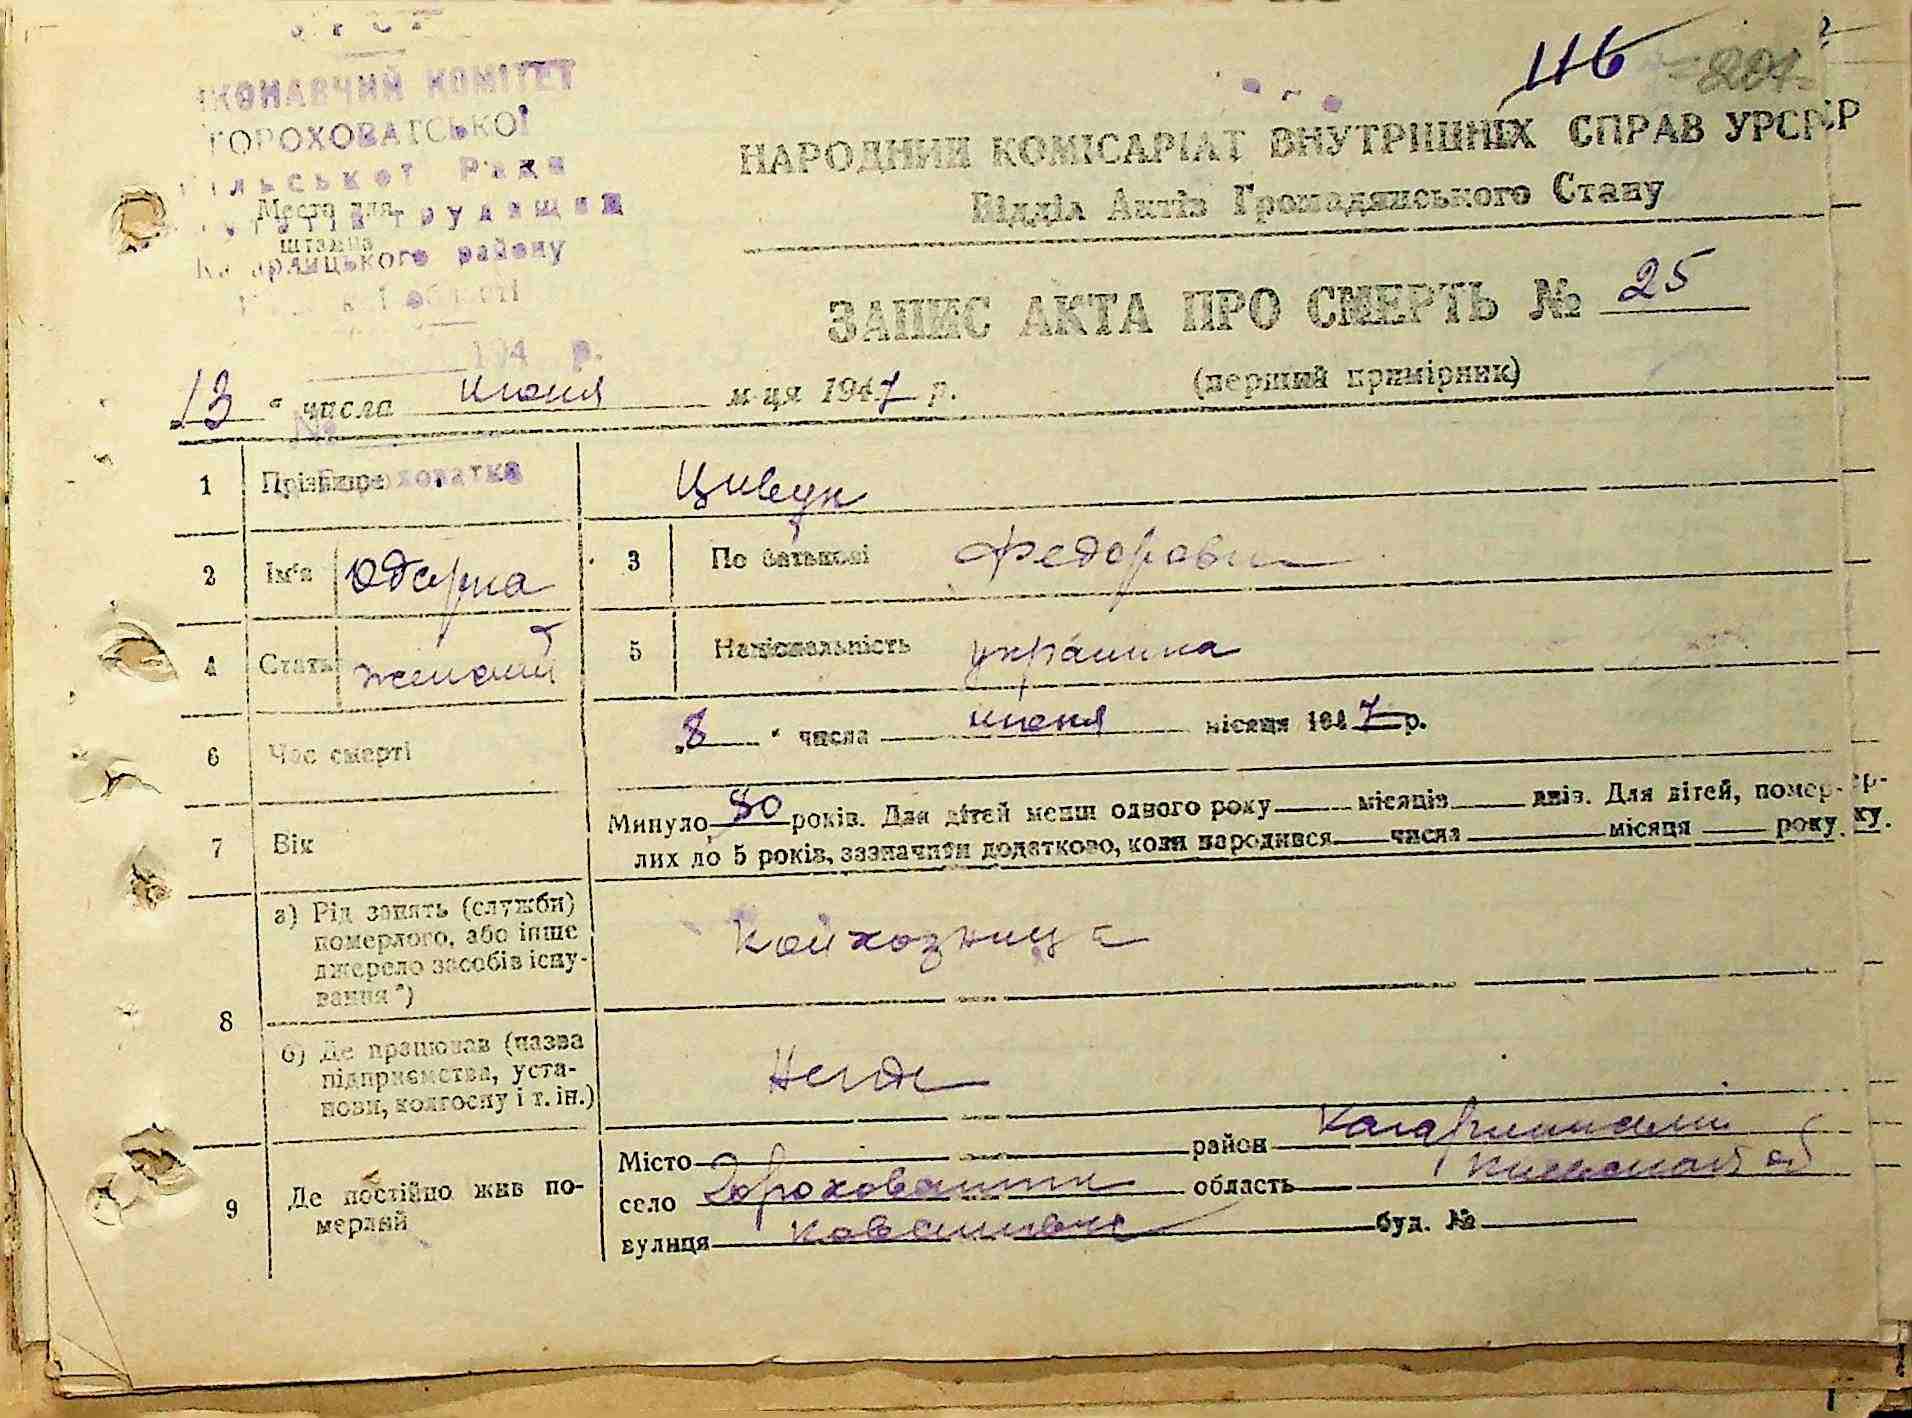 УРСР
ВИКОНАВЧИЙ КОМІТЕТ
ГОРОХОВАТСЬКОЇ
Сільської Ради
Место для
депутатів трудящих
штампа
Кагарлицького району
області
194 р.
№
Гороховатка
116
201
НАРОДНИЙ КОМІСАРІАТ ВНУТРІШНІХ СПРАВ УРСР
Відділ Актів Громадянського Стану
ЗАПИС АКТА ПРО СМЕРТЬ № 25
(перший примірник)
13 " числа июня м-ця 1947 р.
1 Прізвище Цивун
2 Ім'я 3 По батькові Федоровна
4 Стать женский 5 Національність украинка
6 Час смерті 8 " числа июня місяця 1947 р.
7 Вік Минуло 80 років. Для дітей менш одного року місяців днів. Для дітей, помер-
лих до 5 років, зазначити додатково, коли народився числа місяця року.
8 а) Рід занять (служби)
померлого, або інше
джерело засобів існу-
вання *)
Колхозница
б) Де працював (назва
підприємства, уста-
нови, колгоспу і т. ін.)
Нигде
9 Де постійно жив по-
мерлий
Місто район Кагарлицкий
село Гороховатка область Киевская об
вулиця буд. №